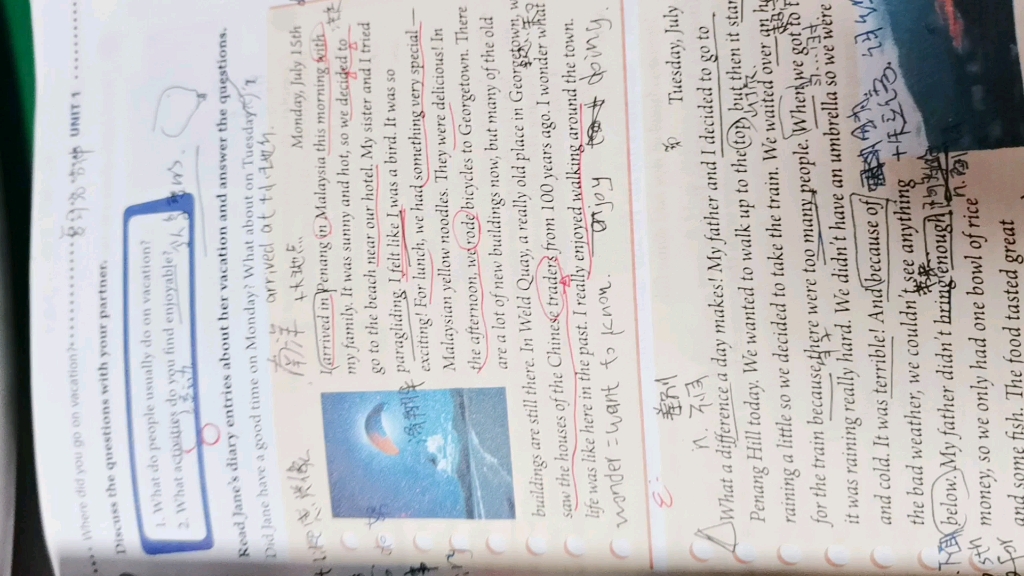 Where did you go on vacation? UNIT 1
Discuss the questions with your partner.
1. What do people usually do on vacation?
2. What activities do you find enjoyable?
Read Jane's diary entries about her vacation and answer the questions.
Did Jane have a good time on Monday? What about on Tuesday?
arrived at + 地点
Monday, July 15th
I arrived in Penang in Malaysia this morning with
my family. It was sunny and hot, so we decided to
go to the beach near our hotel. My sister and I tried
paragliding. I felt like I was a bird. It was so
exciting! For lunch, we had something very special—
Malaysian yellow noodles. They were delicious! In
the afternoon, we rode bicycles to Georgetown. There
are a lot of new buildings now, but many of the old
buildings are still there. In Weld Quay, a really old place in Georgetown, w
saw the houses of the Chinese traders from 100 years ago. I wonder what
life was like here in the past. I really enjoyed walking around the town.
wonder = want to know. enjoy doing.
Tuesday, July
n. 不同
What a difference a day makes! My father and I decided to go to
Penang Hill today. We wanted to walk up to the top, but then it star
raining a little so we decided to take the train. We waited over an
for the train because there were too many people. When we got to
it was raining really hard. We didn't have an umbrella so we were
and cold. It was terrible! And because of
the bad weather, we couldn't see anything
below. My father didn't bring enough
money, so we only had one bowl of rice
and some fish. The food tasted great